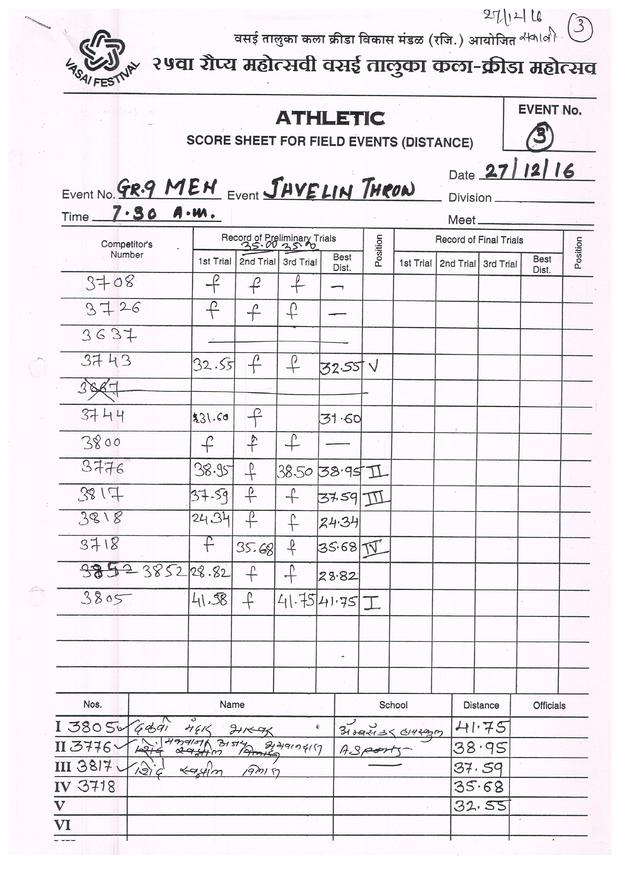 27/12/16
3
वसई तालुका कला क्रीडा विकास मंडळ (रजि.) आयोजित
VASAI FESTIVAL
२५वा रौप्य महोत्सवी वसई तालुका कला-क्रीडा महोत्सव
ATHLETIC
SCORE SHEET FOR FIELD EVENTS (DISTANCE)
EVENT No.
3
Date 27/12/16
Event No. Gr.9 MEN Event JAVELIN THROW Division
Time 7.30 A.m. Meet
Competitor's Number Record of Preliminary Trials Position Record of Final Trials Position
35.00 35.00
1st Trial 2nd Trial 3rd Trial Best Dist. 1st Trial 2nd Trial 3rd Trial Best Dist.
3708 f f f —
3726 f f f —
3637
3743 32.55 f f 32.55 V
3744 31.60 f 31.60
3800 f f f —
3776 38.95 f 38.50 38.95 II
3817 37.59 f f 37.59 III
3818 24.34 f f 24.34
3718 f 35.68 f 35.68 IV
3852 28.82 f f 28.82
3805 41.58 f 41.75 41.75 I
Nos. Name School Distance Officials
I 3805 ✓ 41.75
II 3776 ✓ A Sports 38.95
III 3817 ✓ शिंदे स्वप्नील विलास 37.59
IV 3718 35.68
V 32.55
VI